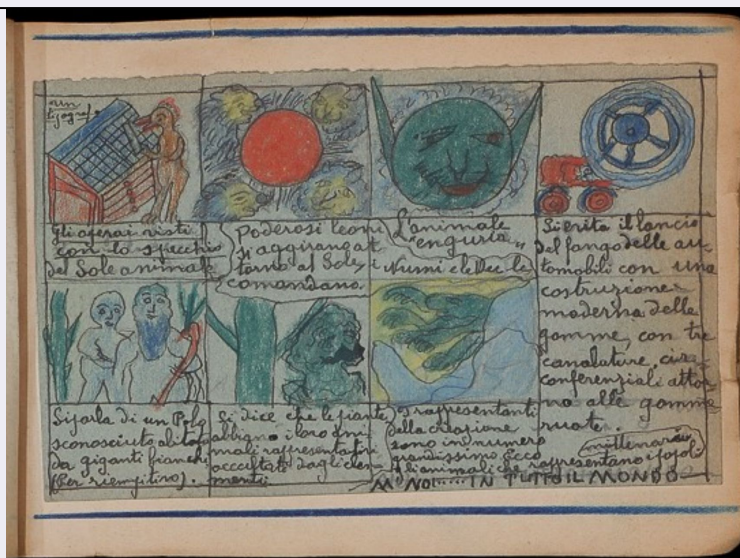 un
tipografo
Gli operai visti
con lo specchio
del Sole animale
Poderosi leoni
si aggirano at
torno al Sole, e
comandano.
L'animale
"enguria"
i Numi e le Dee le
Si evita il lancio
del fango delle au-
tomobili con una
costruzione
moderna delle
gomme, con tre
canalature, circo-
conferenziali attor-
no alle gomme
ruote.
Si parla di un Polo
sconosciuto abitato
da giganti bianchi
(Per riempitivo).
Si dice che le piante
abbiano i loro ani-
mali rappresentativi
accettato dagli ele-
menti
I rappresentanti
della creazione
sono in numero
grandissimo. Ecco
gli animali che rappresentano i popoli
millenario
M' NOI..... IN TUTTO IL MONDO